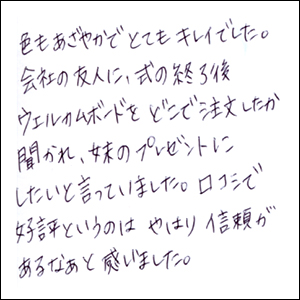 色もあざやかでとてもキレイでした。
会社の友人に、式の終了後
ウェルカムボードをどこで注文したか
聞かれ、妹のプレゼントに
したいと言っていました。口コミで
好評というのは やはり信頼が
あるなあと感じました。